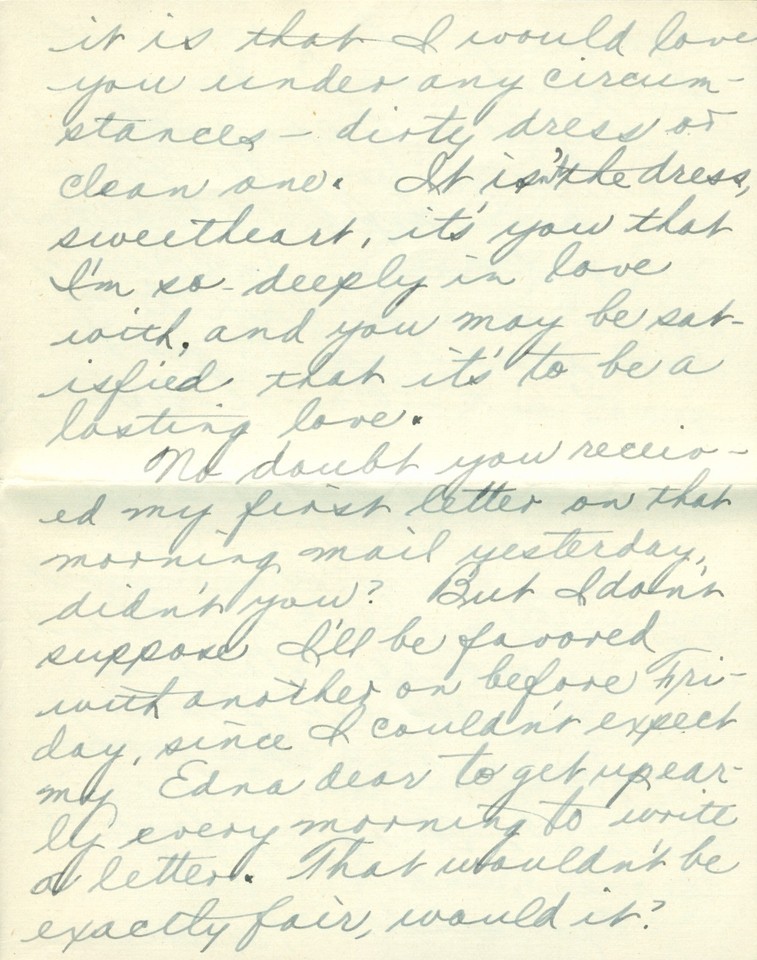 it is that I would love
you under any circum-
stances - dirty dress or
clean one. It isn't the dress,
sweetheart, it's you that
I'm so deeply in love
with, and you may be sat-
isfied that it's to be a
lasting love.
No doubt you receiv-
ed my first letter on that
morning mail yesterday,
didn't you? But I don't
suppose I'll be favored
with another on before Fri-
day, since I couldn't expect
my Edna dear to get up ear-
ly every morning to write
a letter. That wouldn't be
exactly fair, would it?